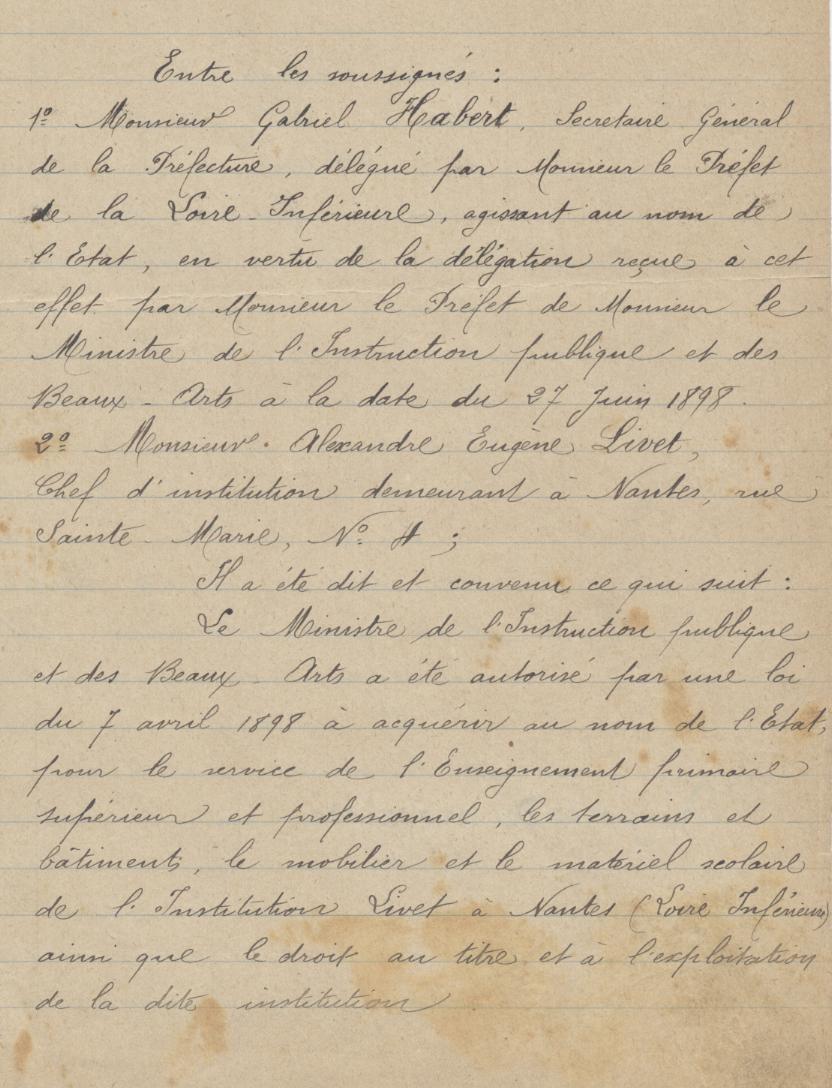 Entre les soussignés :
1º Monsieur Gabriel Habert, Secretaire Général
de la Préfecture, délégué par Monsieur le Préfet
de la Loire-Inférieure, agissant au nom de
l'Etat, en vertu de la délégation reçue à cet
effet par Monsieur le Préfet de Monsieur le
Ministre de l'Instruction publique et des
Beaux-Arts à la date du 27 Juin 1898.
2º Monsieur Alexandre Eugène Livet,
Chef d'institution demeurant à Nantes, rue
Sainte-Marie, Nº 4 ;
Il a été dit et convenu ce qui suit :
Le Ministre de l'Instruction publique
et des Beaux-Arts a été autorisé par une loi
du 7 avril 1898 à acquérir au nom de l'Etat,
pour le service de l'Enseignement primaire
supérieur et professionnel, les terrains et
bâtiments, le mobilier et le matériel scolaire
de l'Institution Livet à Nantes (Loire Inférieure)
ainsi que le droit au titre et à l'exploitation
de la dite institution